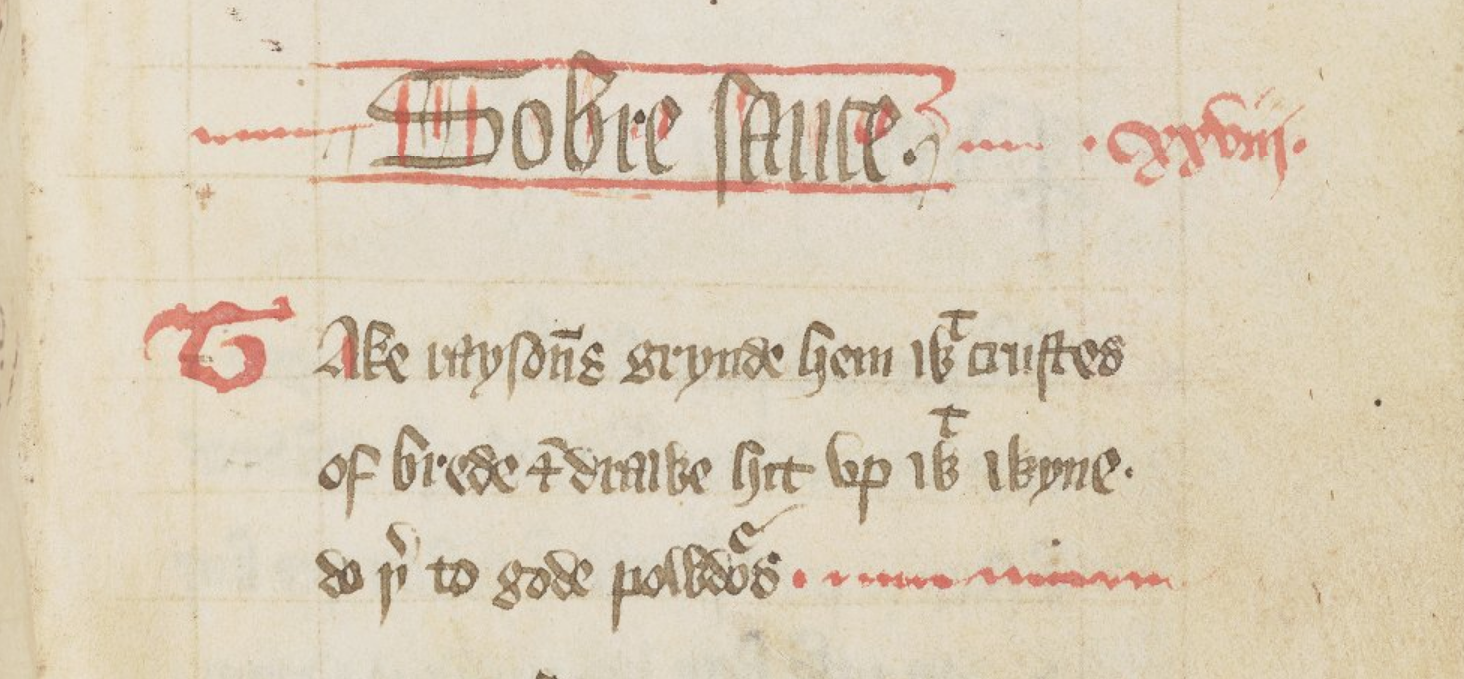 Sobre sauce. .xxviij.
Take raysoūs grynde hem wᵗ crustes
of brede ⁊ drawe hit vp wᵗ wyne.
do þʳ to gode powdoʳs.